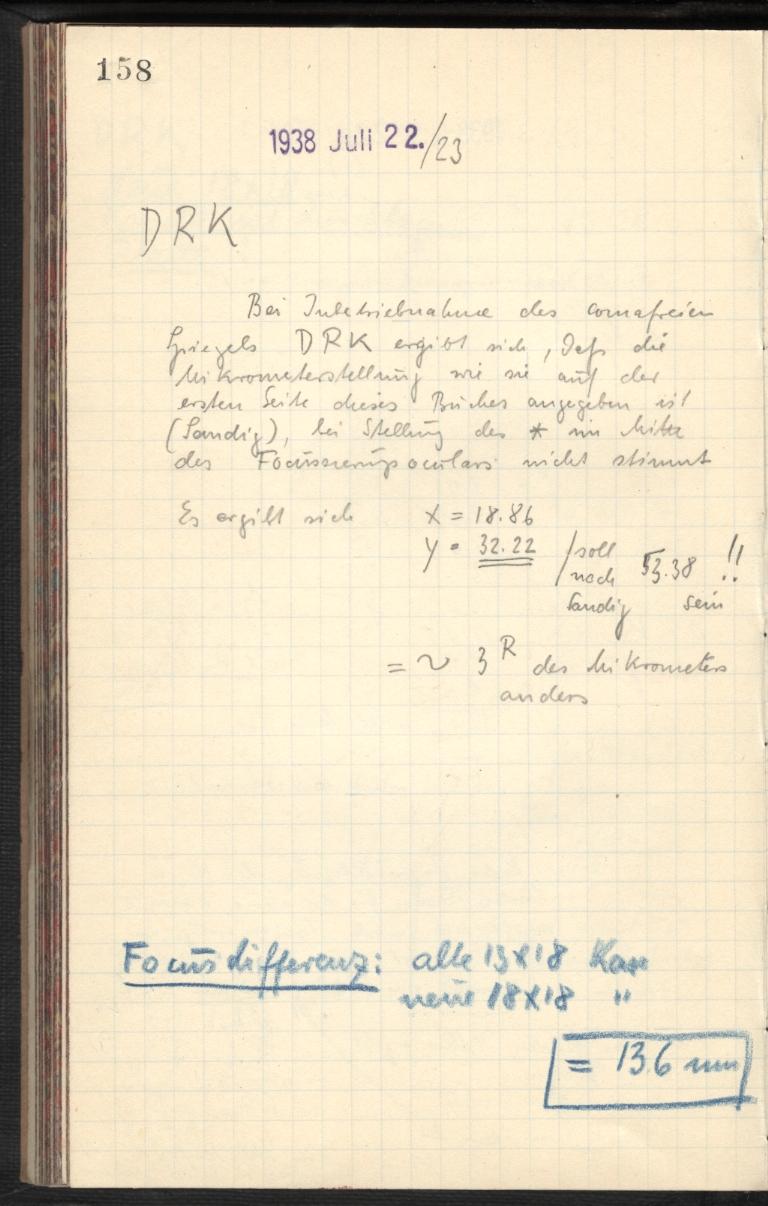 158
1938 Juli 22./23
DRK
Bei Inbetriebnahme des comafreien
Spiegels DRK ergibt sich, daß die
Mikrometerstellung wie sie auf der
ersten Seite dieses Buches angegeben ist
(Sandig), bei Stellung des * im Mitte
des Focussierungsoculars nicht stimmt
Es ergibt sich X = 18.86
Y = 32.22 / soll
noch 53.38 !!
Sandig sein
= ~ 3 R des Mikrometers
anders
Focusdifferenz: alte 13X18
neue 18X18 "
= 136 mm